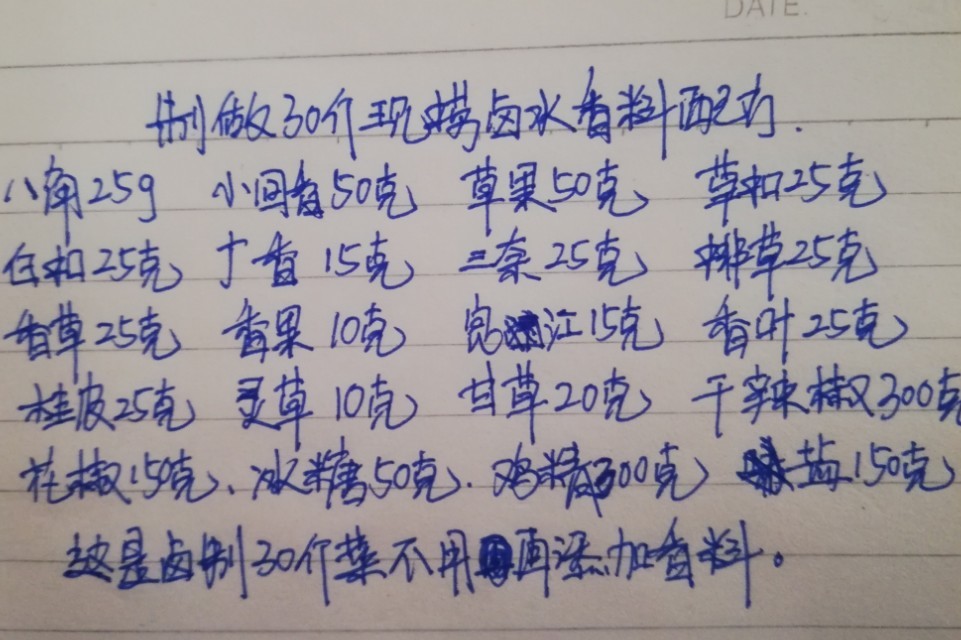 DATE.
制做30个现捞卤水香料配方.
八角25g 小回香50克 草果50克 草扣25克
白扣25克 丁香15克 三奈25克 排草25克
香草25克 香果10克 江15克 香叶25克
桂皮25克 灵草10克 甘草20克 干辣椒300克
花椒150克、冰糖50克. 鸡精300克 盐150克
这是卤制30个菜不用再添加香料。